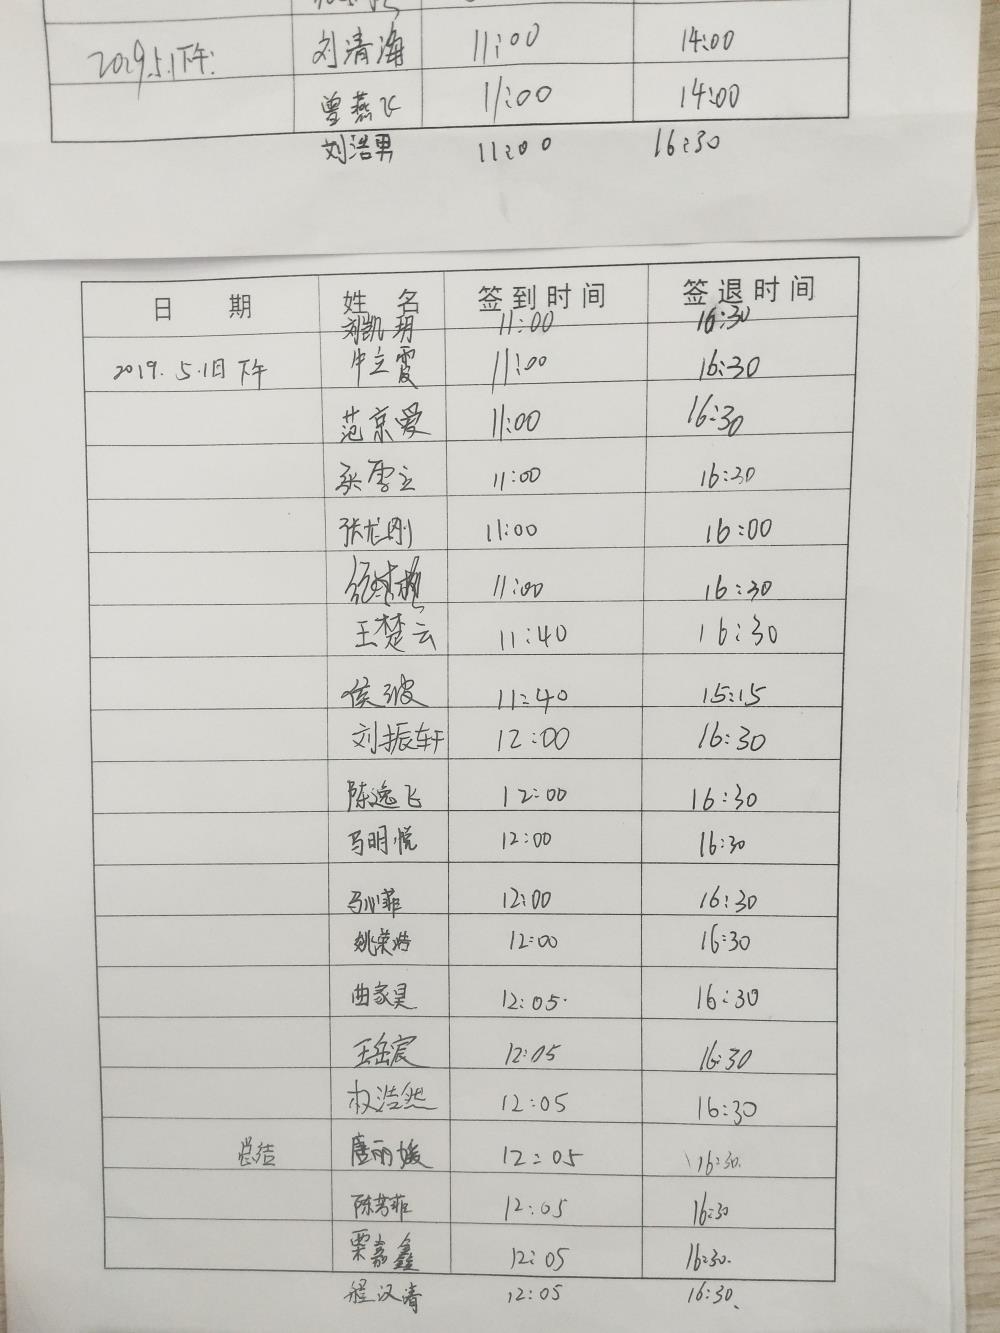 刘清海 11:00 14:00
2019.5.1下午.
曾燕飞 11:00 14:00
刘浩男 11:00 16:30
日 期 姓 名 签到时间 签退时间
刘凯玥 11:00 16:30
2019.5.1日下午 申立霞 11:00 16:30
范京爱 11:00 16:30
11:00 16:30
张龙刚 11:00 16:00
11:00 16:30
王楚云 11:40 16:30
侯波 11:40 15:15
刘振轩 12:00 16:30
陈逸飞 12:00 16:30
马明悦 12:00 16:30
马心菲 12:00 16:30
姚荣皓 12:00 16:30
曲家昊 12:05. 16:30
王岳宸 12:05 16:30
权浩然 12:05 16:30
总结 唐丽媛 12:05 16:30.
陈芳菲 12:05 16:30
栗嘉鑫 12:05 16:30.
程汉清 12:05 16:30、